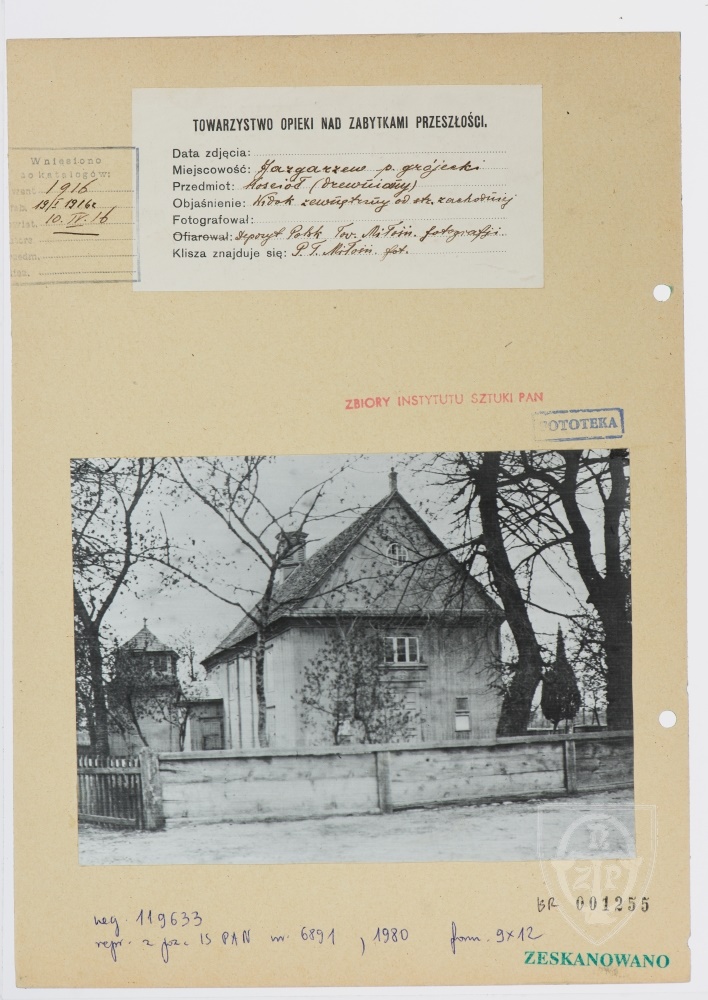 TOWARZYSTWO OPIEKI NAD ZABYTKAMI PRZESZŁOŚCI.
Data zdjęcia:
Miejscowość: Jazgarzew p. grójecki
Przedmiot: Kościół (drewniany)
Objaśnienie: Widok zewnętrzny od str. zachodniej
Fotografował:
Ofiarował: Depozyt Polsk Tow. Miłośn. fotografji
Klisza znajduje się: P. T. Miłośn. fot.
Wniesiono
do katalogów:
1916
19/I 1916
10. IV. 16
ZBIORY INSTYTUTU SZTUKI PAN
FOTOTEKA
BR 001255
neg. 119633
repr. z poz. IS PAN nr. 6891, 1980 form. 9x12
ZESKANOWANO